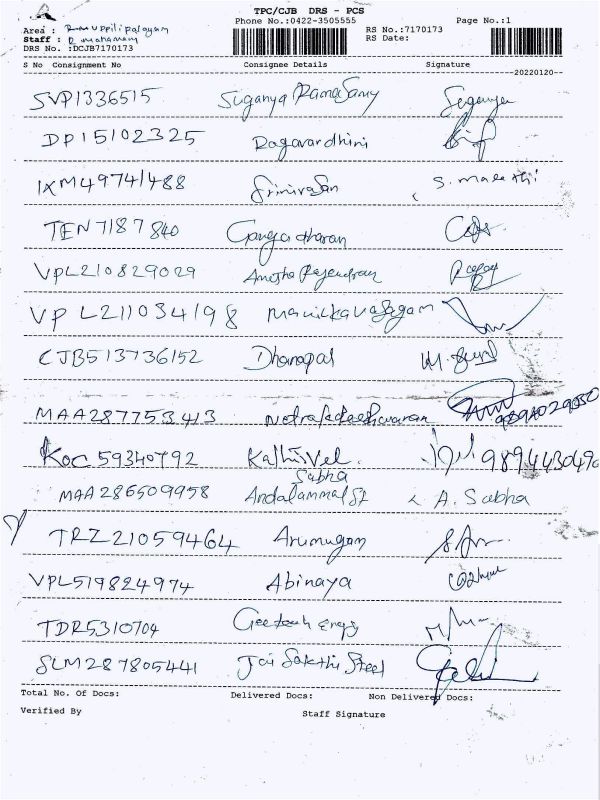 TPC/CJB DRS - PCS
Phone No.:0422-3505555 Page No.:1
Area : Uppilipalayam
Staff :
DRS No.:DCJB7170173
RS No.:7170173
RS Date:
S No Consignment No Consignee Details Signature
20220120
SVP1336515 Suganya Ramasamy Suganya
DP15102325 Ragavardhini
IXM49741488 Srinivasan S. Malathi
TEN7187840 Gangadharan
VPL210829029 Anusha Rajendran
VPL211034198 Manickavasagam
CJB513736152 Dhanapal
MAA287753413
KOC59340792 Kathirvel.
Sabha
MAA286509958 Andalammal St A. Sabha
TRZ21059464 Arumugam
VPL519824974 Abinaya
TDR5310704 Geetech Engg
SLM287805441 Jai Sakthi Steel
Total No. Of Docs: Delivered Docs: Non Delivered Docs:
Verified By Staff Signature